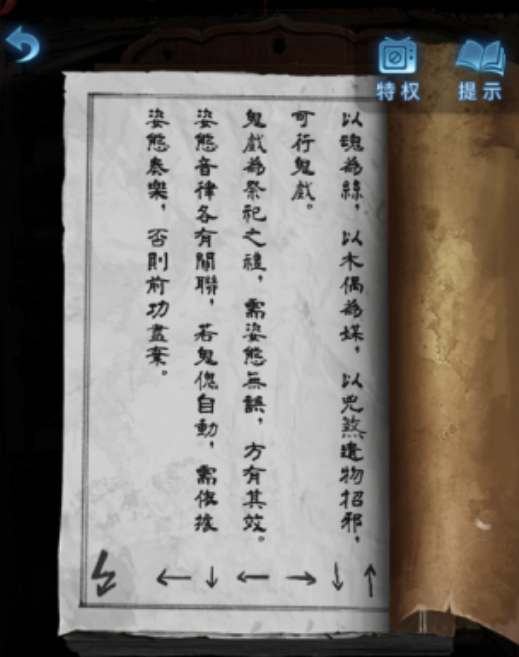 特权
提示
以魂為絲，以木偶為媒，以兇煞遺物招邪，
可行鬼戲。
鬼戲為祭祀之禮，需姿態無誤，方有其效。
姿態音律各有關聯，若鬼傀自動，需依據
姿態奏樂，否則前功盡棄。
↑ ↓ → ← ↓ ←